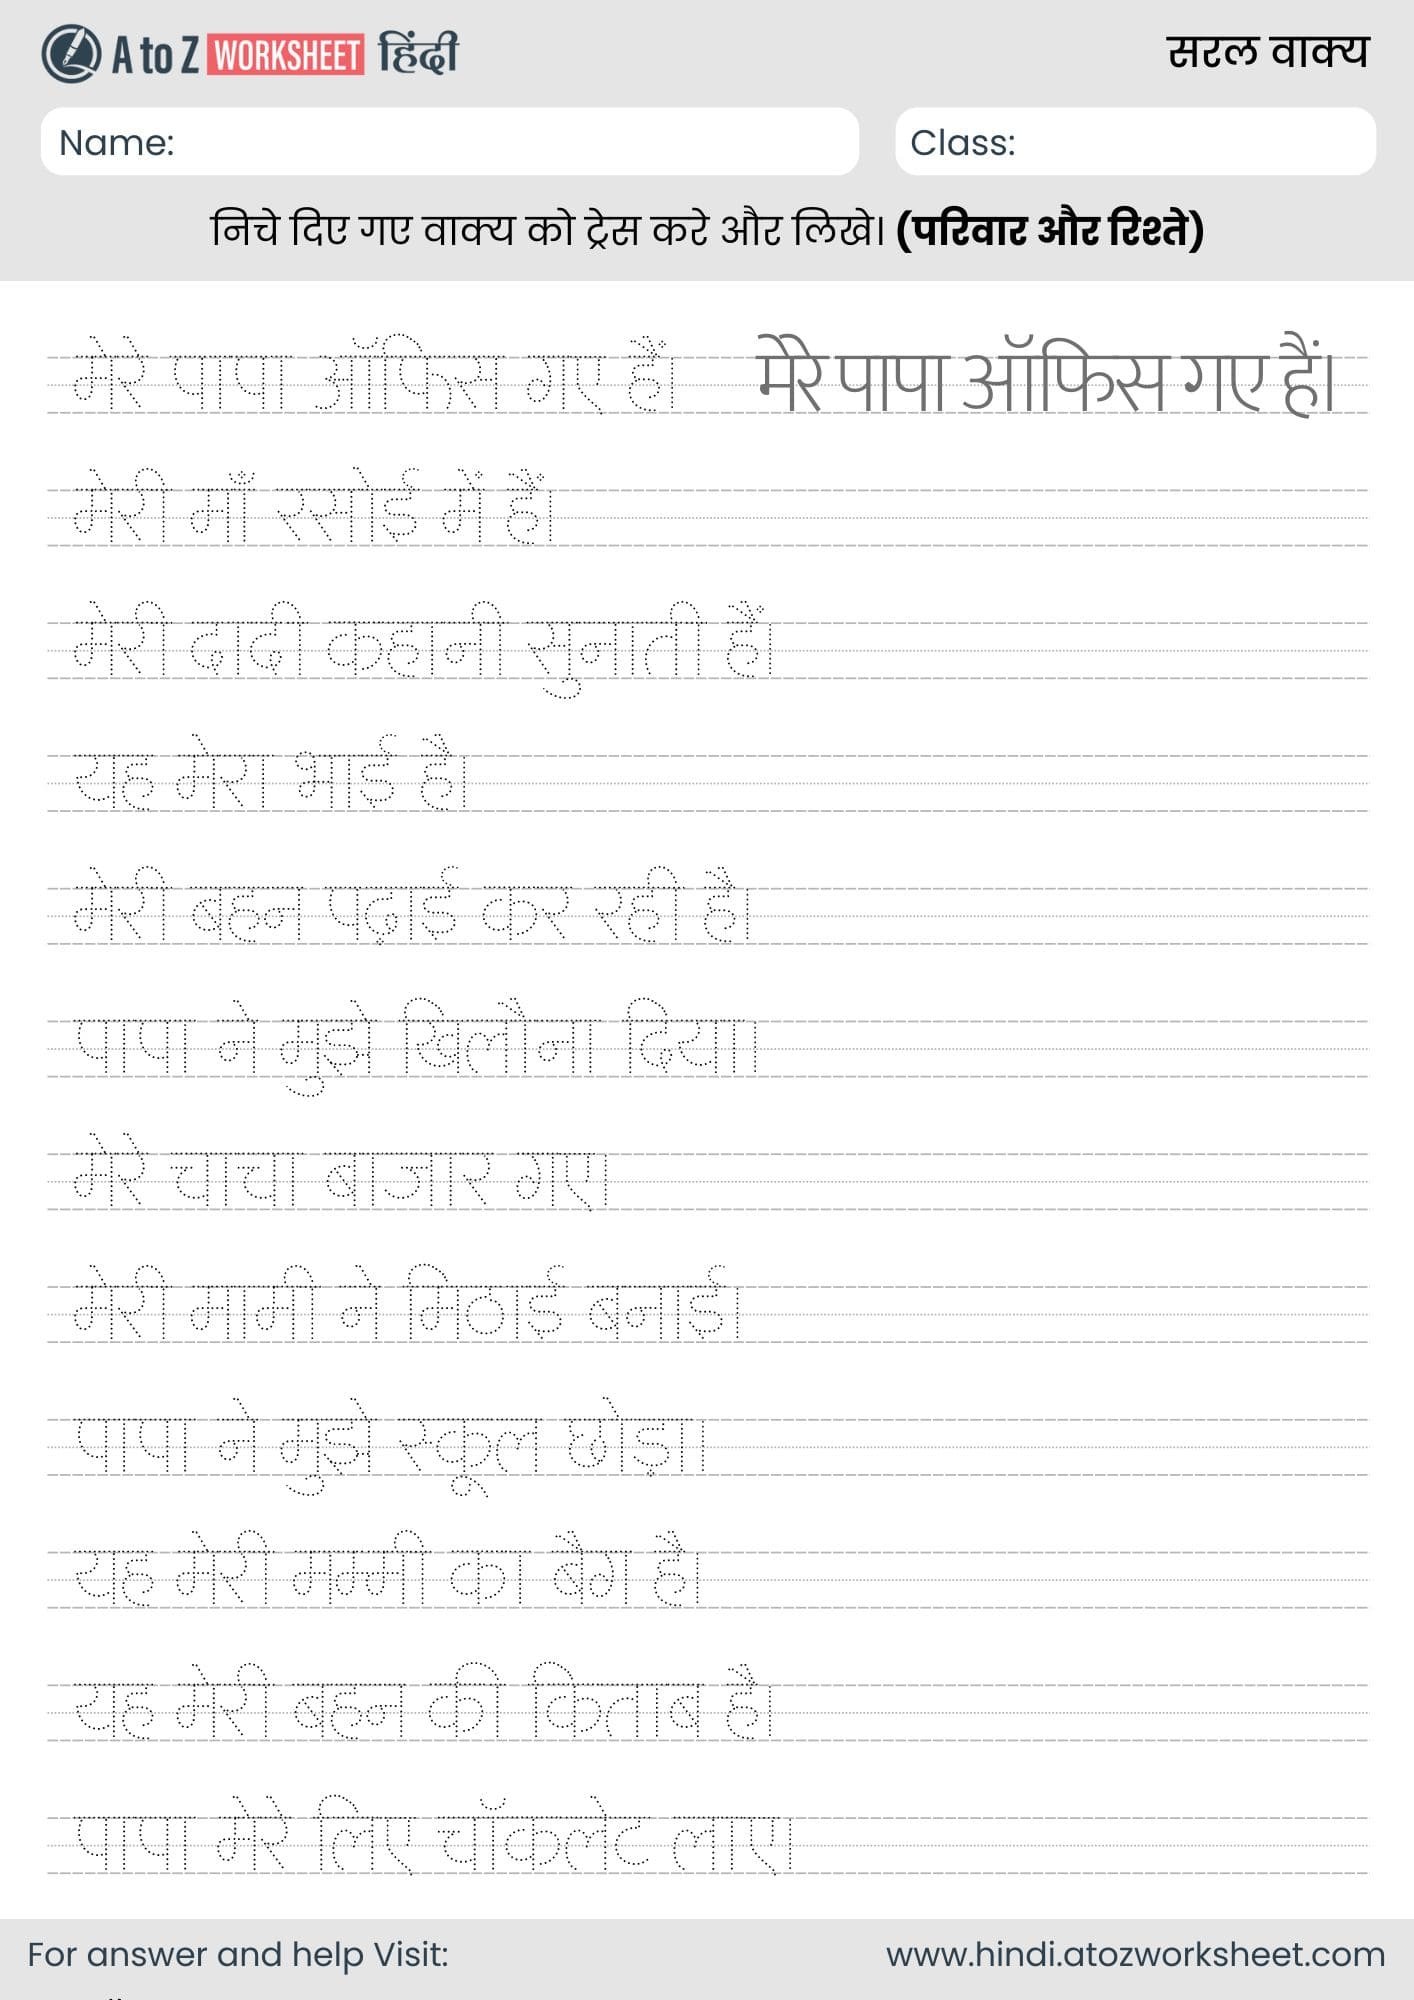 A to Z WORKSHEET हिंदी
सरल वाक्य
Name:
Class:
निचे दिए गए वाक्य को ट्रेस करे और लिखे। (परिवार और रिश्ते)
मेरे पापा ऑफिस गए हैं। मेरे पापा ऑफिस गए हैं।
मेरी माँ रसोई में हैं।
मेरी दादी कहानी सुनाती हैं।
यह मेरा भाई है।
मेरी बहन पढ़ाई कर रही है।
पापा ने मुझे खिलौना दिया।
मेरे चाचा बाजार गए।
मेरी मामी ने मिठाई बनाई।
पापा ने मुझे स्कूल छोड़ा।
यह मेरी मम्मी का बैग है।
यह मेरी बहन की किताब है।
पापा मेरे लिए चॉकलेट लाए।
For answer and help Visit:
www.hindi.atozworksheet.com